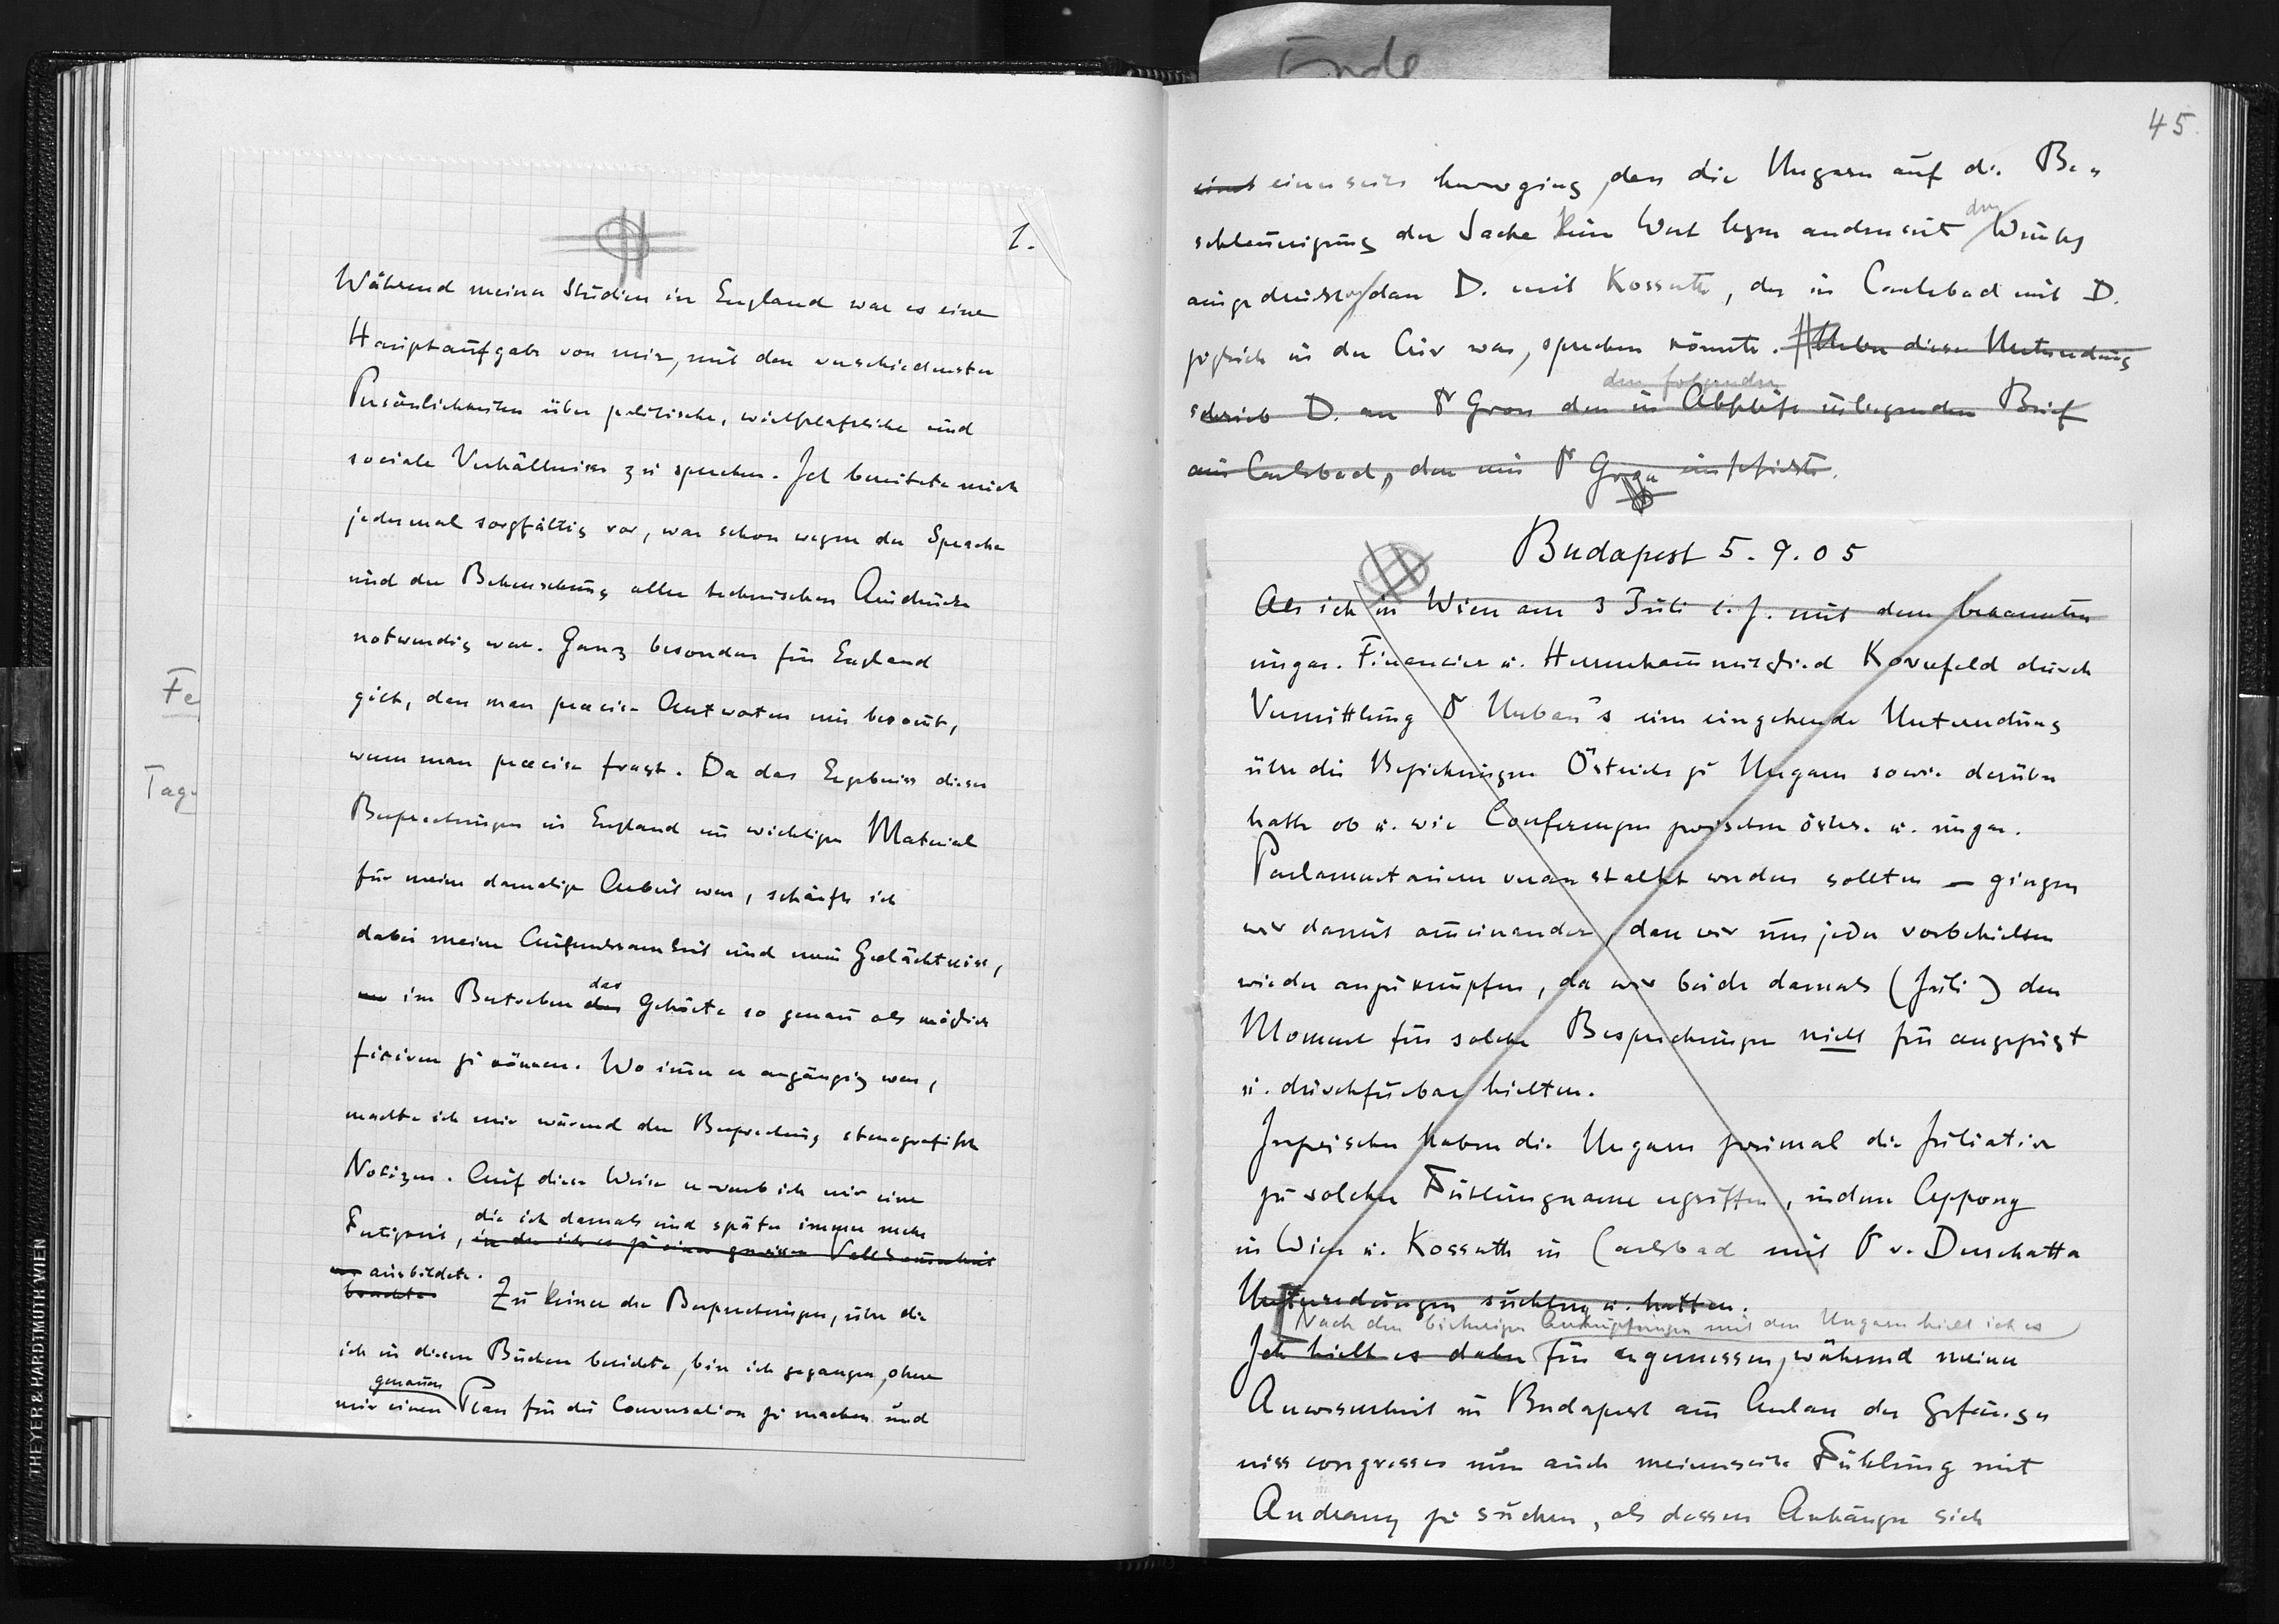 Ende
1.
Während meiner Studien in England war es eine
Hauptaufgabe von mir, mit den verschiedensten
Persönlichkeiten über politische, wirtschaftliche und
sociale Verhältnisse zu sprechen. Ich bereitete mich
jedesmal sorgfältig vor, was schon wegen der Sprache
und der Beherrschung aller technischen Ausdrücke
notwendig war. Ganz besonders für England
gilt, dass man precise Antworten nur bekomt,
wenn man precise fragt. Da das Ergebniss dieser
Besprechungen in England ein wichtiges Material
für meine damalige Arbeit war, schärfte ich
dabei meine Aufmerksamkeit und mein Gedächtniss,
um im Bestreben das Gehörte so genau als möglich
fixiren zu können. Wo imer es angängig war,
machte ich mir wärend der Besprechung stenografische
Notizen. Auf diese Weise erwarb ich mir eine
die ich damals und später immer mehr
Fertigkeit, in der ich es zu einer gewissen Vollkommenheit
ausbildete.
brachte. Zu keiner der Besprechungen, über die
ich in diesen Büchern berichte, bin ich gegangen, ohne
genauen
mir einen Plan für die Conversation zu machen und
Fe
Tage
THEYER & HARDTMUTH WIEN
45.
einerseits hervorging, dass die Ungarn auf die Be-
den
schleunigung der Sache keinen Wert legen anderseits Wunsch
ausgedrückt, dass D. mit Kossuth, der in Carlsbad mit D.
zugleich in der Cur war, sprechen könnte. Ueber diese Unterredung
den folgenden
schrieb D. an Dr Gross den in Abschrift inliegenden Brief
aus Carlsbad, den mir Dr einschickte.
Budapest 5.9.05
Als ich in Wien am 3 Juli l. J. mit dem bekannten
ungar. Financier u. Herrenhausmitglied Kornfeld durch
Vermittlung Dr Urban's eine eingehende Unterredung
über die Beziehungen Östreichs zu Ungarn sowie darüber
hatte ob u. wie Conferenzen zwischen östr. u. ungar.
Parlamentariern veranstaltet werden sollten — gingen
wir damit auseinander, dass wir uns jeder vorbehielten
wieder anzuknüpfen, da wir beide damals (Juli) den
Moment für solche Besprechungen nicht für angezeigt
u. durchfürbar hielten.
Inzwischen haben die Ungarn zweimal die Initiative
zu solcher Fühlungname ergriffen, indem Appony
in Wien u. Kossuth in Carlsbad mit Dr v. Derschatta
Unterredungen suchten u. hatten.
Nach den bisherigen Anknüpfungen mit den Ungarn hielt ich es
Ich hielt es daher für angemessen, während meiner
Anwesenheit in Budapest aus Anlass des Gefäng-
nisscongresses nun auch meinerseits Fühlung mit
Andrassy zu suchen, als dessen Anhänger sich